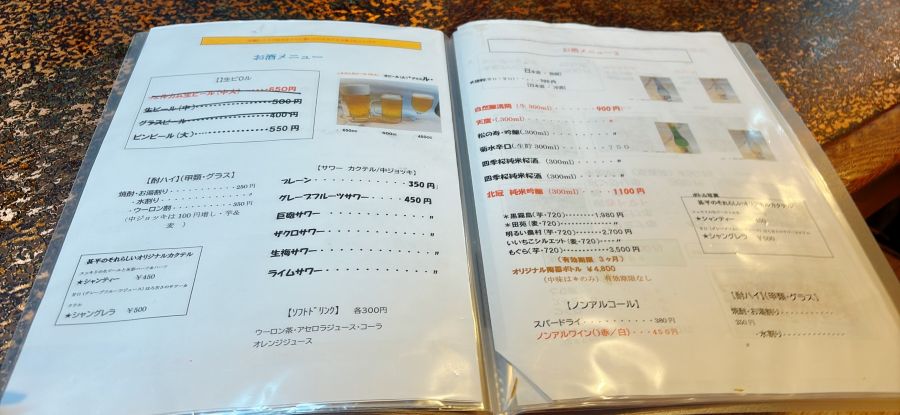 お酒メニュー
生ビール(中) 500円
グラスビール 400円
ビンビール(大) 550円
【酎ハイ】(甲類・グラス)
焼酎・お湯割り 250円
・水割り 〃
・ウーロン割 350円
(中ジョッキは100円増し・芋&麦 )
甚平のそれらしいオリジナルカクテル
★シャンティー ¥450
★シャングレラ ¥500
【サワー カクテル/中ジョッキ】
プレーン 350円
グレープフルーツサワー 450円
巨砲サワー 〃
ザクロサワー 〃
生梅サワー 〃
ライムサワー 〃
【ソフトドリンク】 各300円
ウーロン茶・アセロラジュース・コーラ
オレンジジュース
お酒メニュー2
(日本酒 / 冷酒)
(生300ml) 900円
松の寿・吟醸(300ml) 〃
菊水辛口(生貯300ml) 750
四季桜純米桜酒 (300ml) 〃
四季桜純米桜酒 (300ml) 〃
北冠 純米吟醸 (300ml) 1100円
*黒霧島(芋・720) 1,980円
*田苑(麦・720) 〃
明るい農村(芋・720) 2,700円
いいちこシルエット(麦・720) 〃
もぐら(芋・720) 3,500円
(有効期限 3ヶ月)
オリジナル陶器ボトル ¥4,800
(中味は*のみ) 有効期限なし
【ノンアルコール】
スパードライ 380円
ノンアルワイン(赤/白) 450円
甚平のそれらしいオリジナルカクテル
★シャンティー
★シャングレラ ¥500
【酎ハイ】(甲類・グラス)
焼酎・お湯割り
350円
・水割り